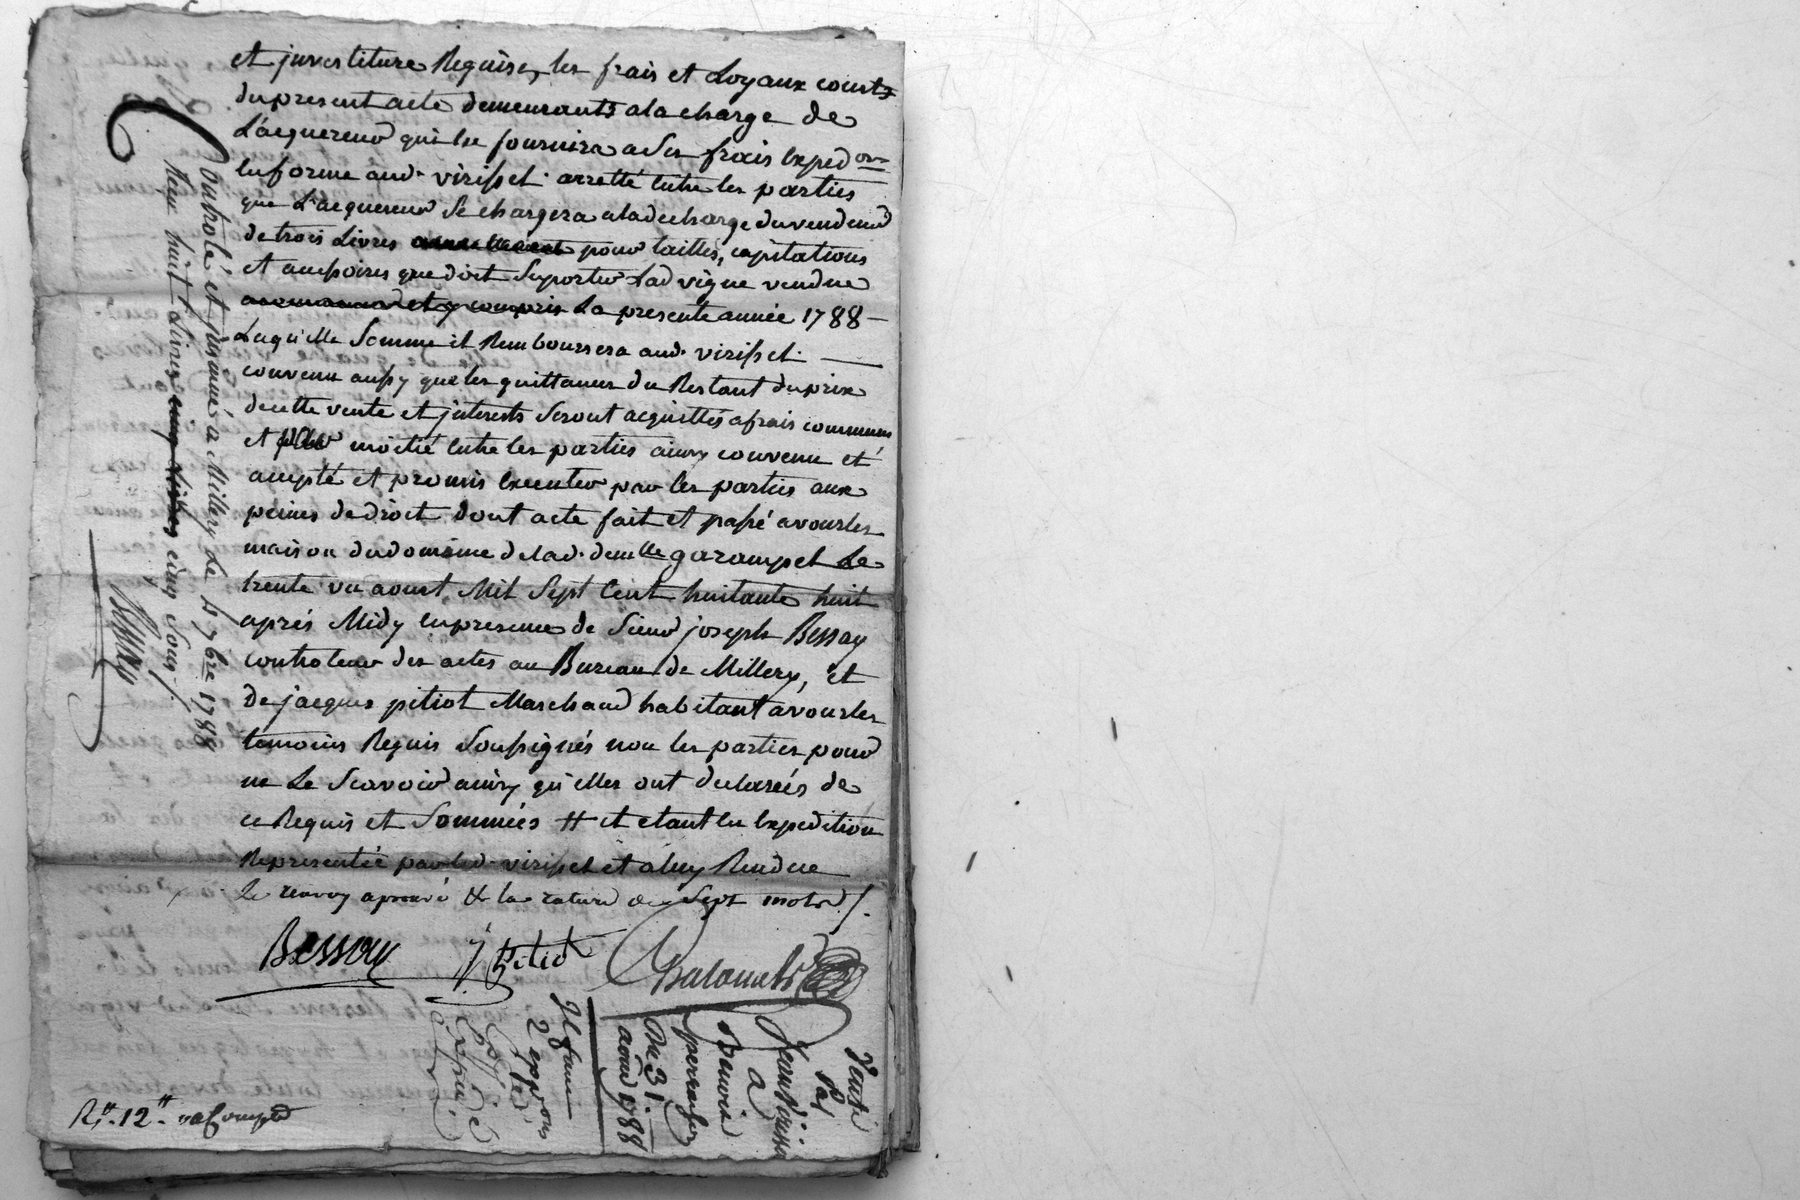 et jnvestiture Requise, les frais et Loyaux cousts
dupresent acte demeurants ala charge de
L'acquereur qui lui fournira a Ses frais Exped.on
En forme aud. virisset. arretté Entre les parties
que L'acquereur Se chargera ala decharge du vendeur
de trois Livres pour tailles, capitations
et accessoires que doit Suporter Lad vigne vendue
et y compris La presente année 1788 —
Laquelle Somme il Remboursera aud. virisset. —
convenu aussy que les quittances du Restant du prix
de cette vente et jnterests Seront acquittés a frais communs
et par moitié Entre les parties ainsy convenu et
accepté et promis Executer par les parties aux
peines de droit dont acte fait et passé a vourles
maison du domaine de lad. demlle garampel Le
trente un aoust Mil Sept Cent huitante huit
aprés Midy En presence de Sieur joseph Bessay
controleur des actes au Bureau de Millery, et
de jacques pitiot Marchand habitant a vourles
temoins Requis Soussignés non les parties pour
ne Le Scavoir ainsy qu'elles ont declarées de
ce Requis et Sommées # et etant En Expedition
Representée par led. virisset et a luy Rendue
Le renvoy aprouvé & la rature de Sept mots /.
Bessay J Pitiot
Controlé et jnsinué a Millery le 4 7bre 1788
Reçu huit Livres cinq Livres cinq Sous /.
Bessay
Vente
Par
Jean virisset
a
Benoit
perrachon
Du 31.
aoust 1788
Il faut
2 exp.ons
Expedié
R.. 12.